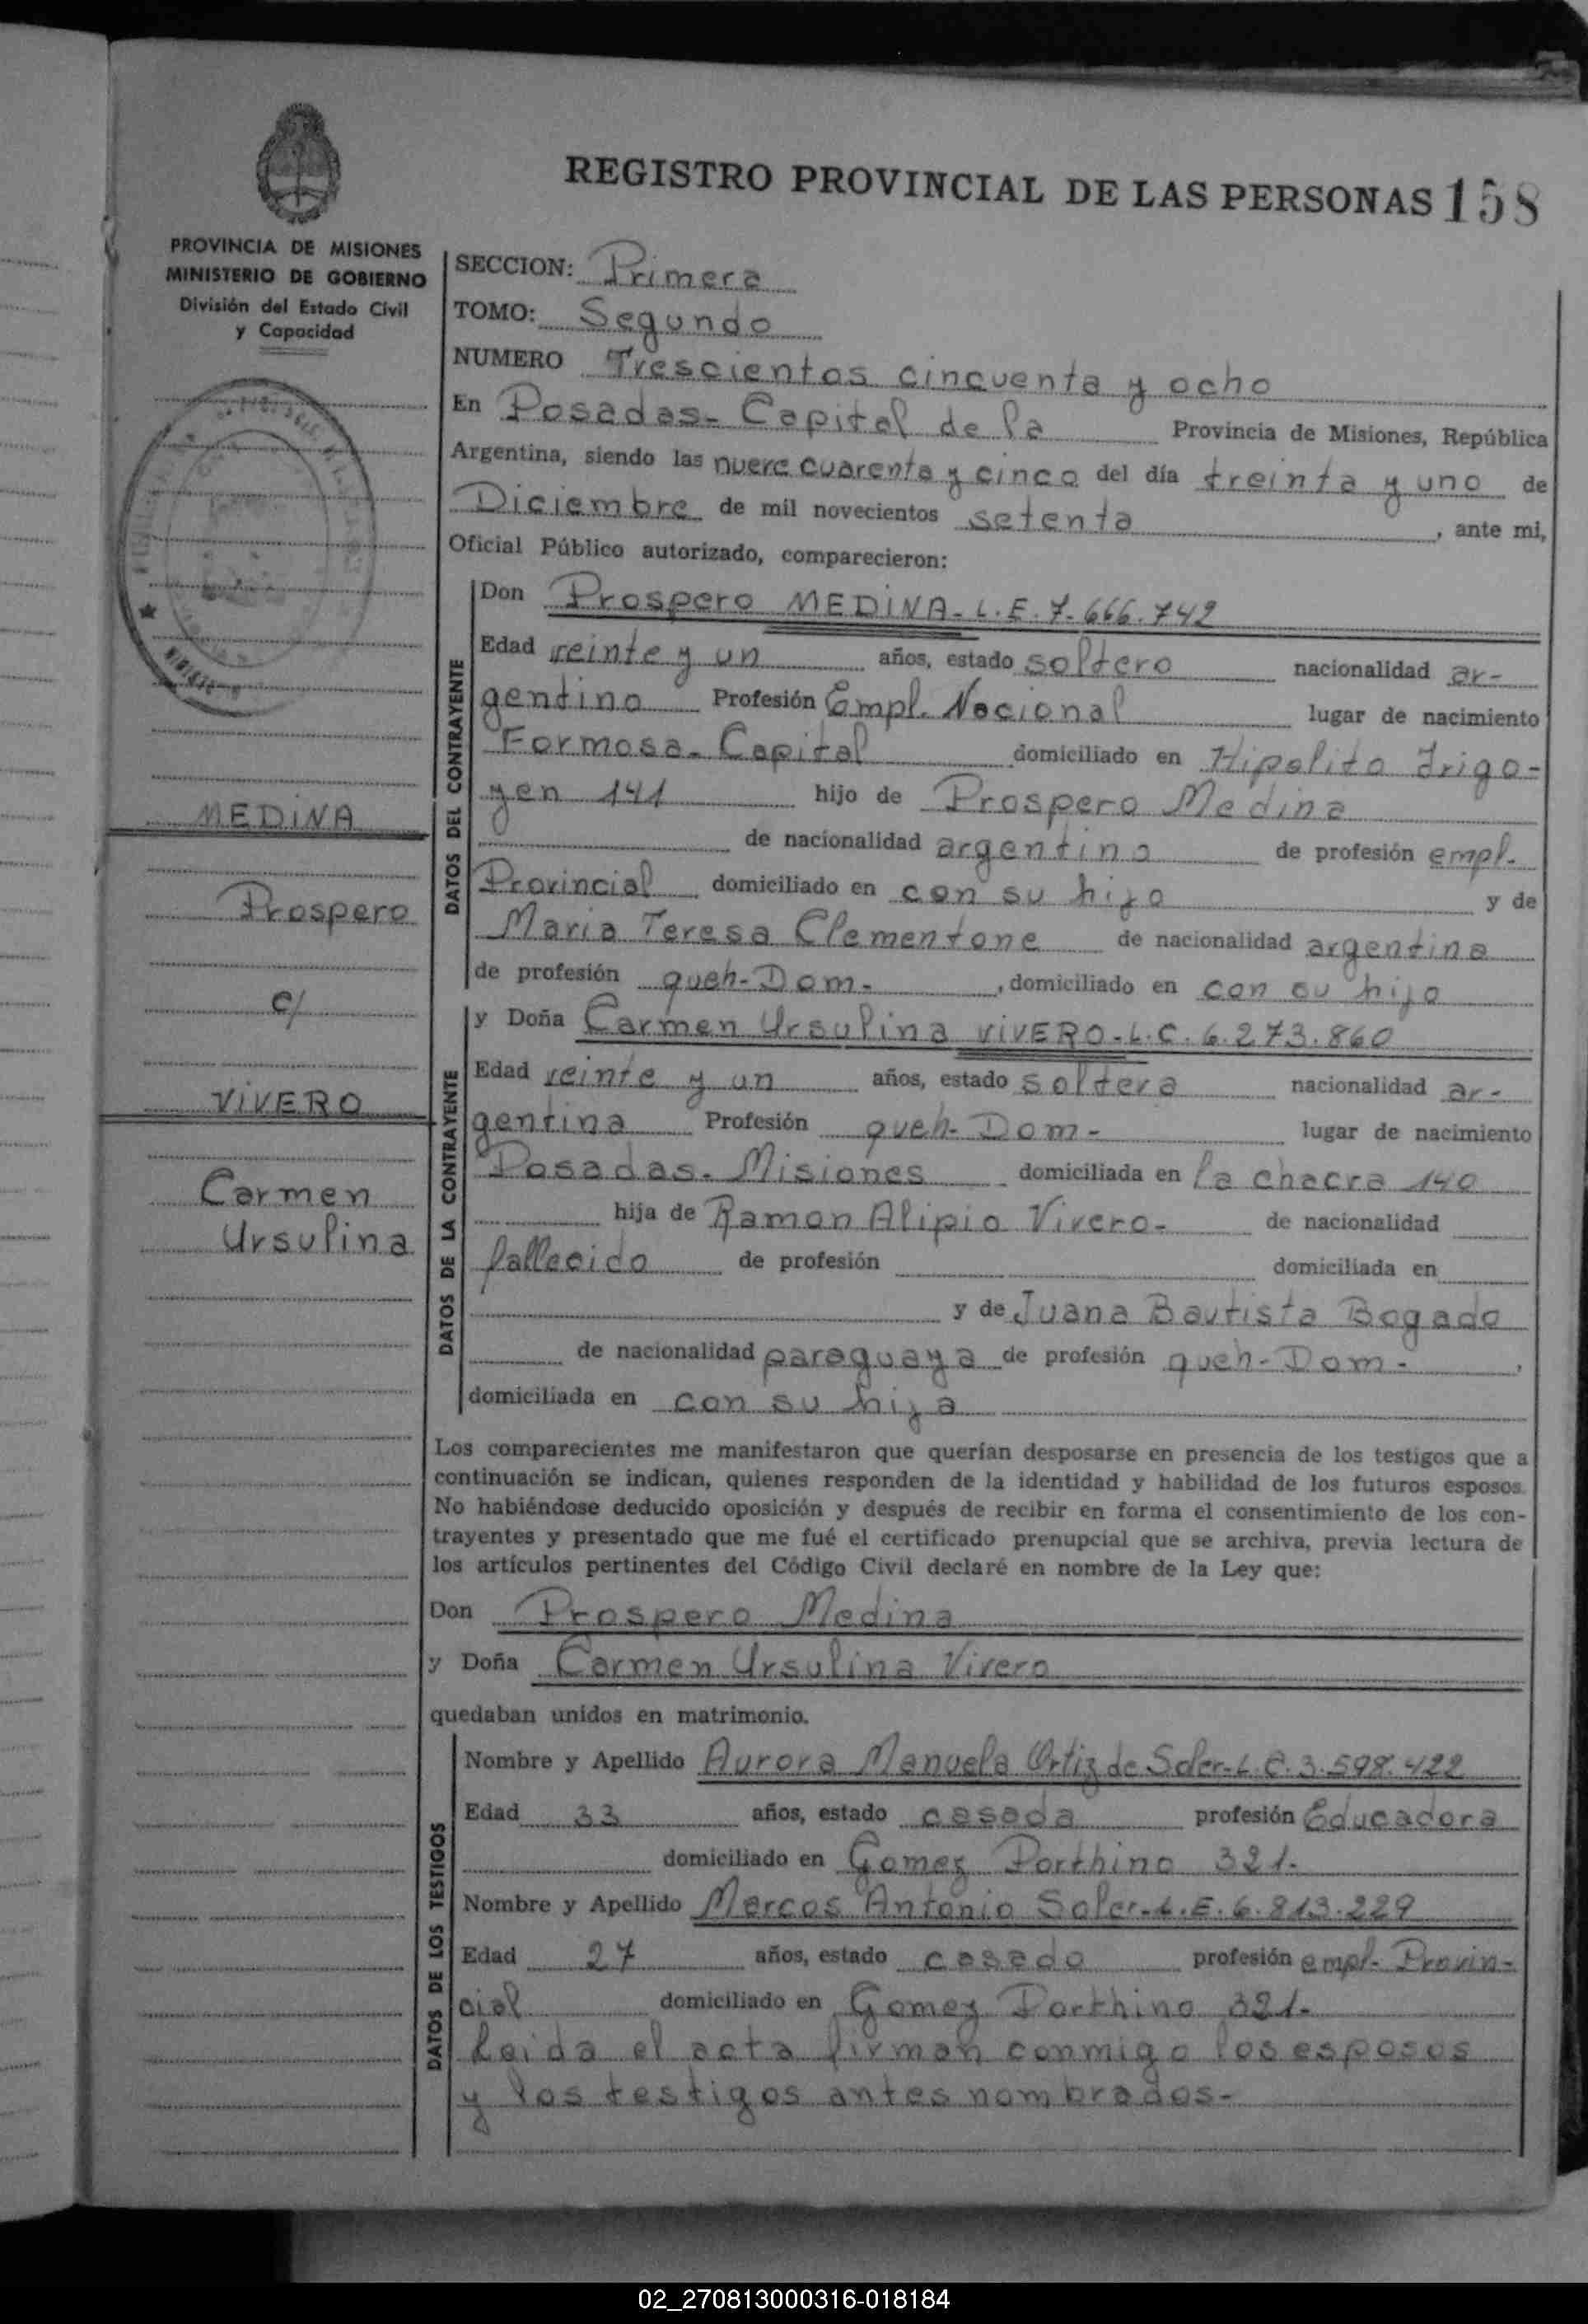 REGISTRO PROVINCIAL DE LAS PERSONAS 158
PROVINCIA DE MISIONES
MINISTERIO DE GOBIERNO
División del Estado Civil
y Capacidad
MEDINA
Prospero
c/
VIVERO
Carmen
Ursulina
SECCION: Primera
TOMO: Segundo
NUMERO Trescientos cincuenta y ocho
En Posadas - Capital de la Provincia de Misiones, República
Argentina, siendo las nueve cuarenta y cinco del día treinta y uno de
Diciembre de mil novecientos setenta, ante mi,
Oficial Público autorizado, comparecieron:
DATOS DEL CONTRAYENTE
Don Prospero MEDINA - L.E. 7.666.742
Edad veinte y un años, estado soltero nacionalidad ar-
gentino Profesión Empl. Nacional lugar de nacimiento
Formosa - Capital domiciliado en Hipolito Irigo-
yen 141 hijo de Prospero Medina
de nacionalidad argentino de profesión empl.
Provincial domiciliado en con su hijo y de
Maria Teresa Clementone de nacionalidad argentina
de profesión queh - Dom -, domiciliado en con su hijo
DATOS DE LA CONTRAYENTE
y Doña Carmen Ursulina VIVERO - L.C. 6.273.860
Edad veinte y un años, estado soltera nacionalidad ar-
gentina Profesión queh - Dom - lugar de nacimiento
Posadas - Misiones domiciliada en la chacra 140
hija de Ramon Alipio Vivero - de nacionalidad
fallecido de profesión domiciliada en
y de Juana Bautista Bogado
de nacionalidad paraguaya de profesión queh - Dom -,
domiciliada en con su hija
Los comparecientes me manifestaron que querían desposarse en presencia de los testigos que a
continuación se indican, quienes responden de la identidad y habilidad de los futuros esposos.
No habiéndose deducido oposición y después de recibir en forma el consentimiento de los con-
trayentes y presentado que me fué el certificado prenupcial que se archiva, previa lectura de
los artículos pertinentes del Código Civil declaré en nombre de la Ley que:
Don Prospero Medina
y Doña Carmen Ursulina Vivero
quedaban unidos en matrimonio.
DATOS DE LOS TESTIGOS
Nombre y Apellido Aurora Manuela Ortiz de Soler - L.C. 3.598.422
Edad 33 años, estado casada profesión Educadora
domiciliado en Gomez Porthino 321.
Nombre y Apellido Marcos Antonio Soler - L.E. 6.813.229
Edad 27 años, estado casado profesión empl. Provin-
cial domiciliado en Gomez Porthino 321.
Leida el acta firman conmigo los esposos
y los testigos antes nombrados -
02_270813000316-018184